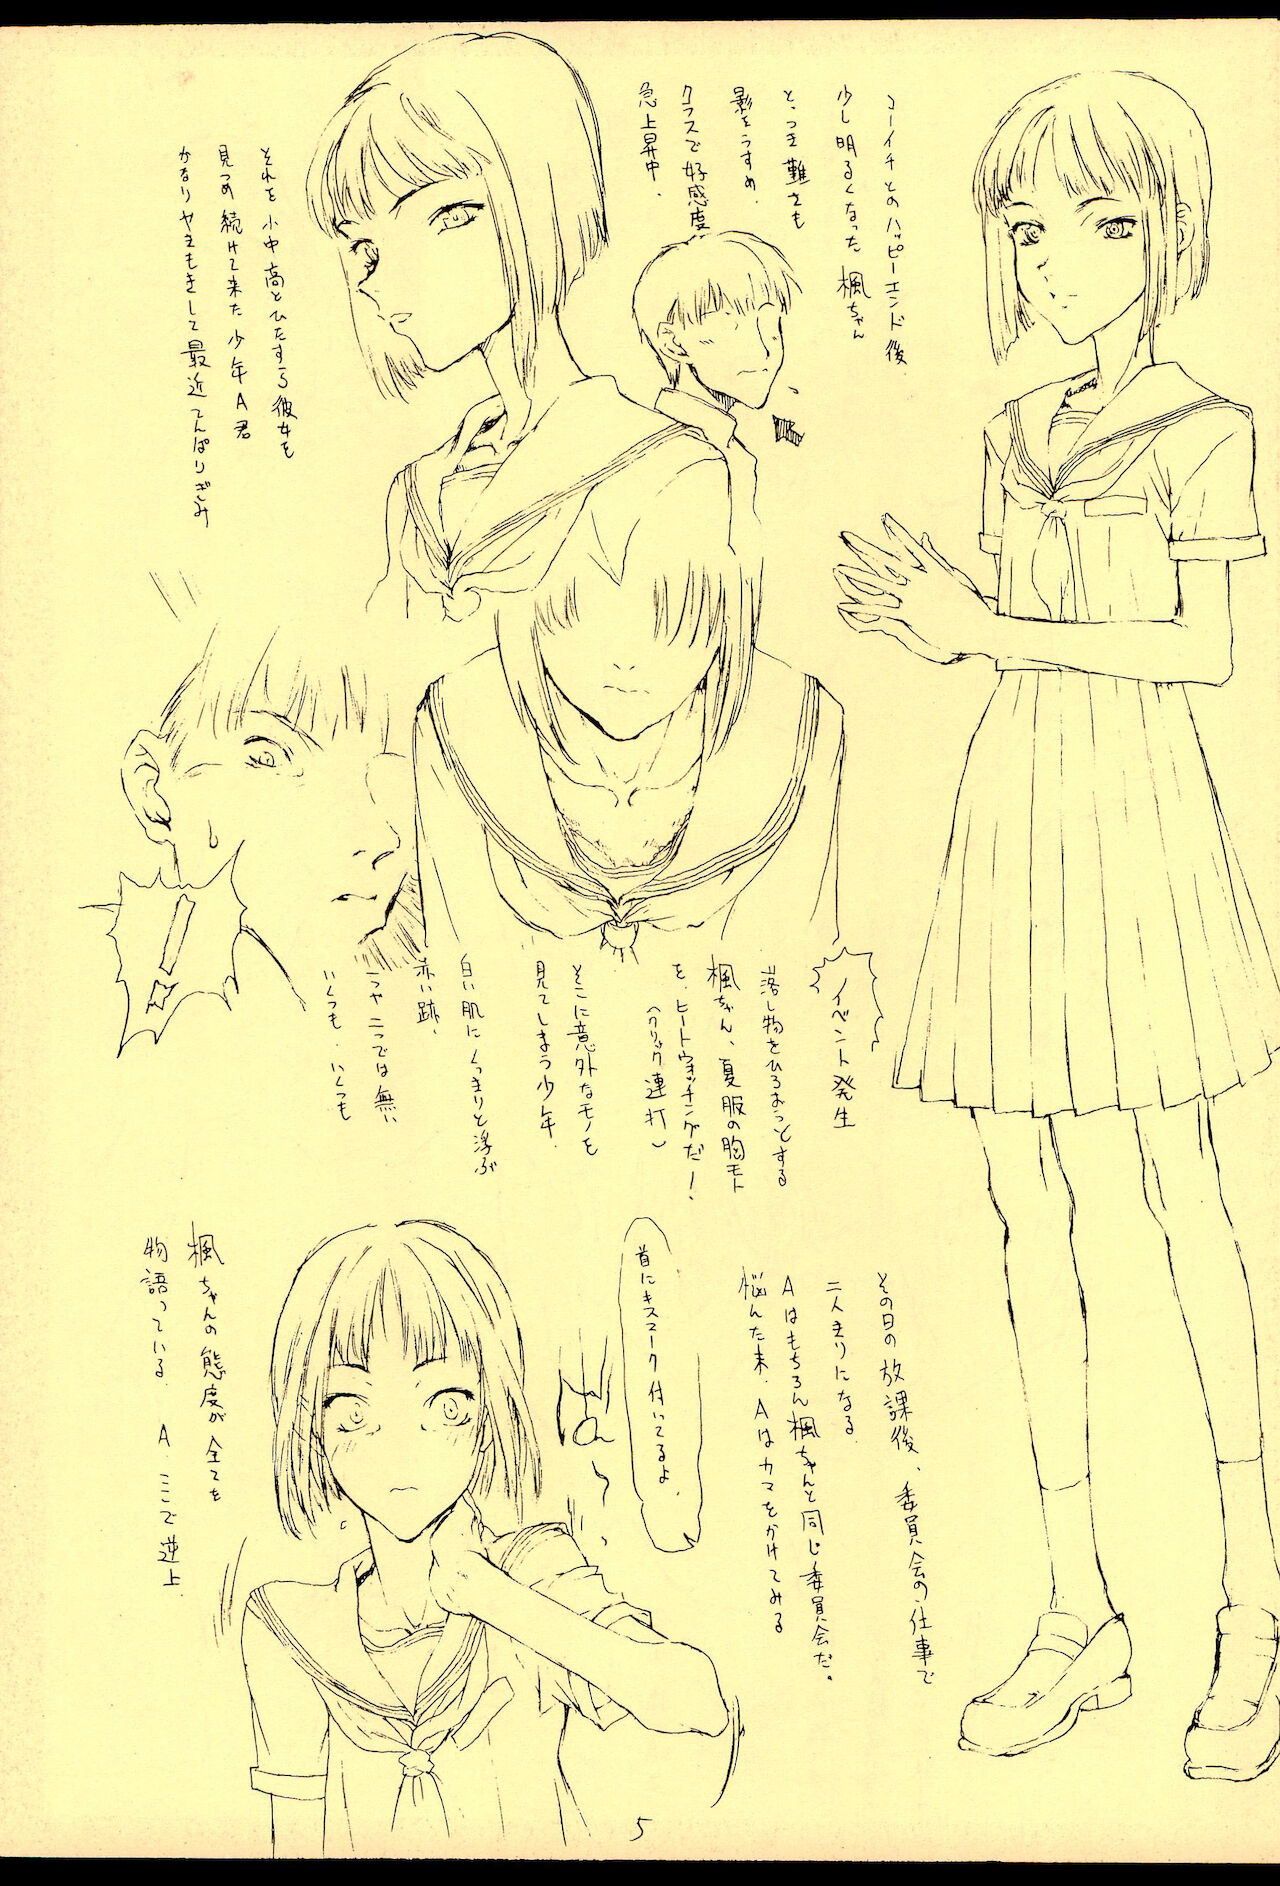 コーイチとのハッピーエンド後
少し明るくなった楓ちゃん
とっつき難さも
影をうすめ、
クラスで好感度
急上昇中.
それを小中高とひたすら彼女を
見つめ続けて来た少年A君
かなりやきもきして最近てんぱりぎみ
イベント発生
落し物をひろおっとする
楓ちゃん、夏服の胸モト
を、ヒートウォッチングだ!
(クリック連打)
そこに意外なモノを
見てしまう少年.
白い肌にくっきりと浮ぶ
赤い跡、
一つや二つでは無い
いくつも、いくつも
その日の放課後、委員会の仕事で
二人きりになる.
Aはもちろん楓ちゃんと同じ委員会だ。
悩んだ末、Aはカマをかけてみる
首にキスマーク付いてるよ.
楓ちゃんの態度が全てを
物語っている. A、ここで逆上.
5